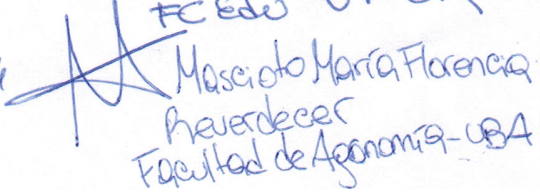 FC Edu
Mascioto María Florencia
Reverdecer
Facultad de Agonomía-UBA